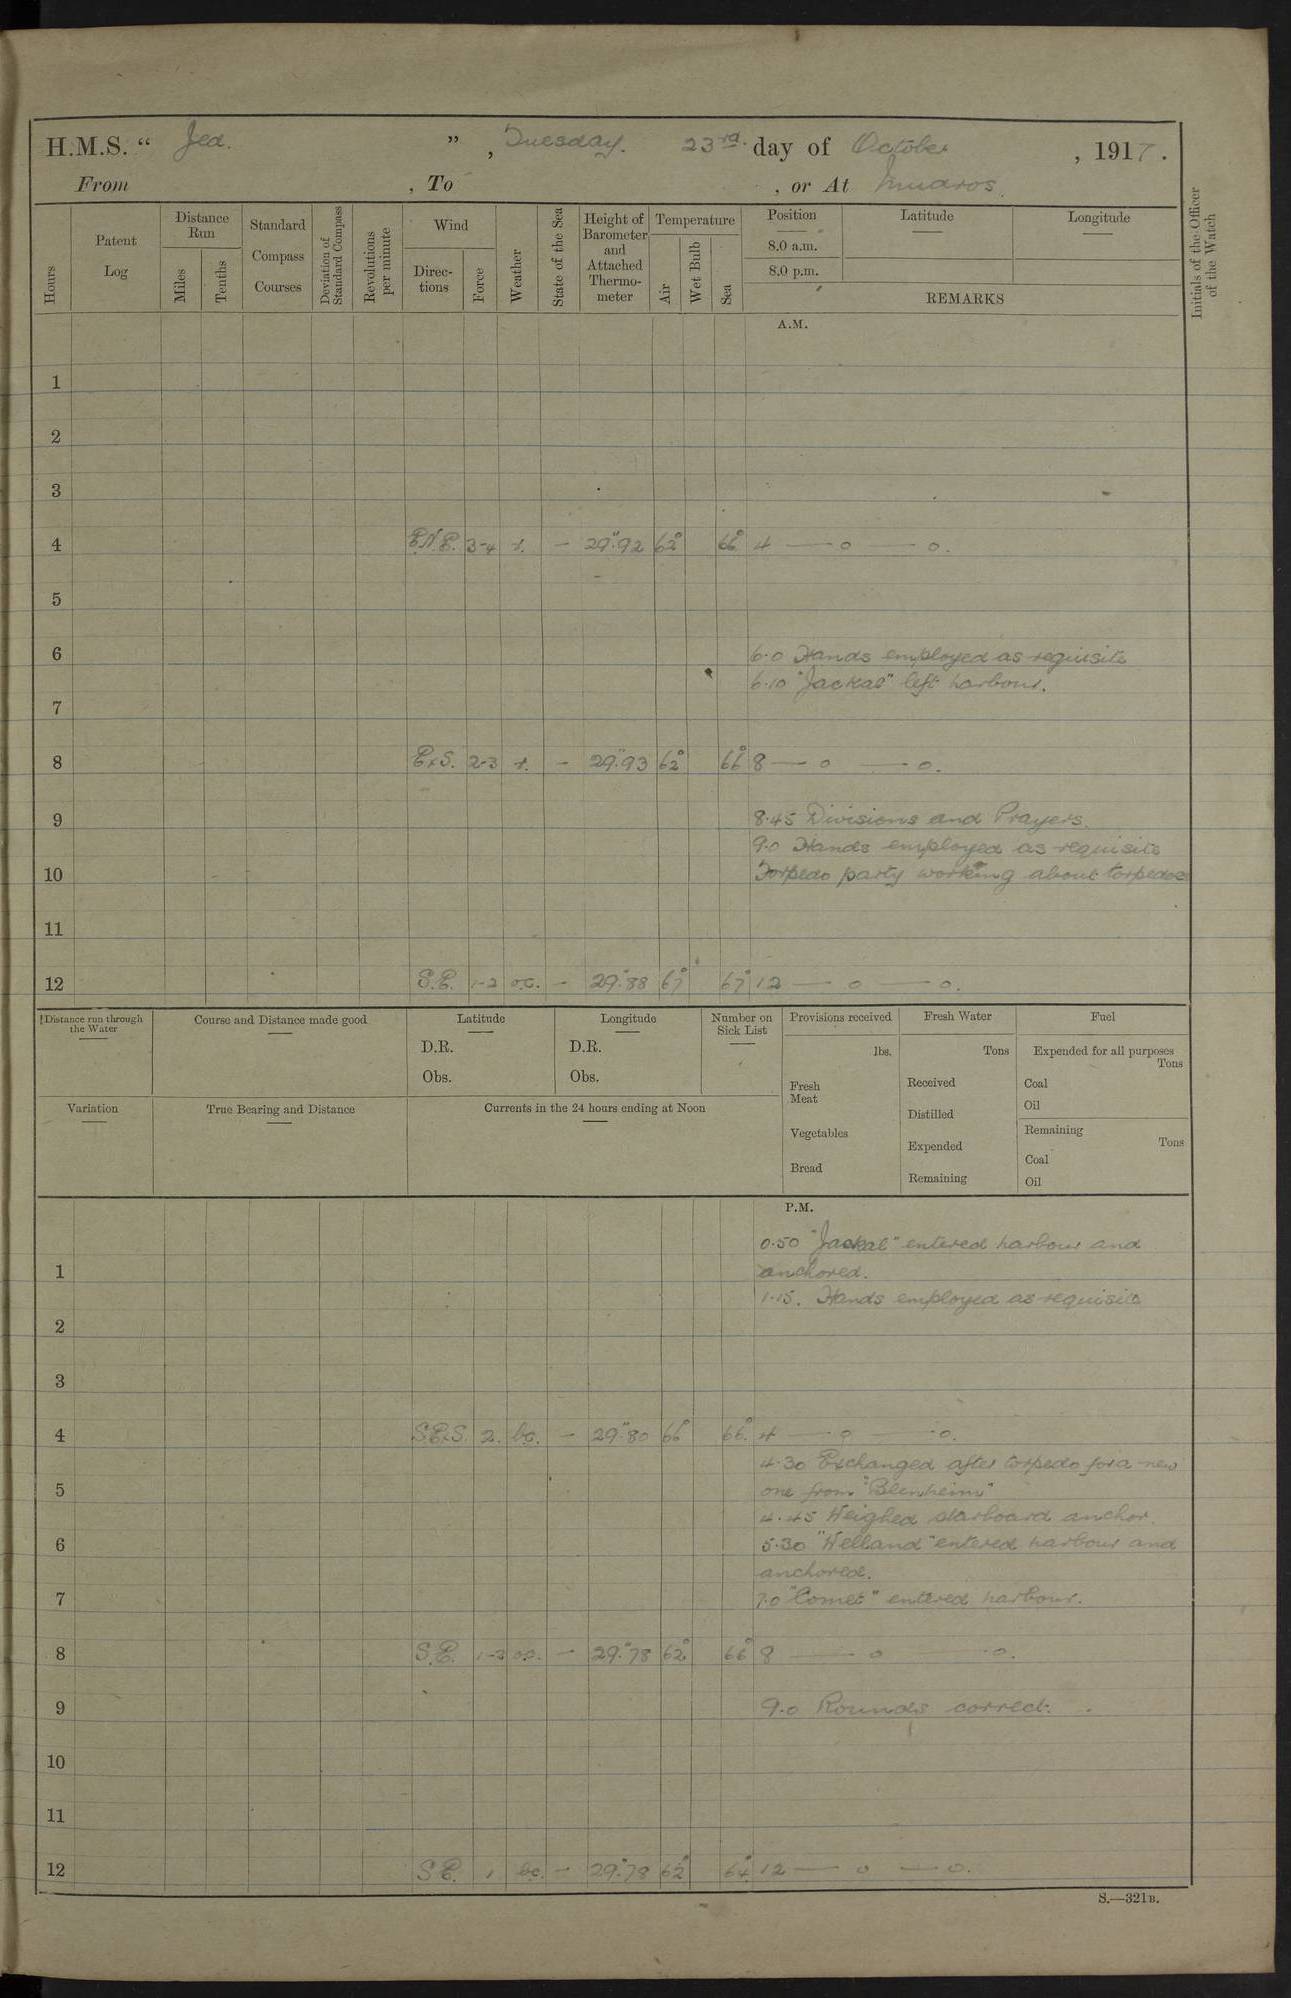 H.M.S. “ Jed. ” , Tuesday. 23rd. day of October , 1917.
From , To , or At Mudros.
Hours
Patent Log
Distance Run
Miles
Tenths
Standard Compass Courses
Deviation of Standard Compass
Revolutions per minute
Wind
Direc-tions
Force
Weather
State of the Sea
Height of Barometer and Attached Thermo-meter
Temperature
Air
Wet Bulb
Sea
Position
8.0 a.m.
8.0 p.m.
Latitude
Longitude
REMARKS
Initials of the Officer of the Watch
A.M.
1
2
3
4 E.N.E. 3-4 r. — 29".92 62° 66° 4 — o — o.
5
6 6.0 Hands employed as requisite
6.10 "Jackal" left harbour.
7
8 ExS. 2-3 r. — 29".93 62° 66° 8 — o — o.
9 8.45 Divisions and Prayers.
9.0 Hands employed as requisite
10 Torpedo party working about torpedoes
11
12 S.E. 1-2 o.c. — 29".88 67° 67° 12 — o — o.
Distance run through the Water
Course and Distance made good
Latitude
D.R.
Obs.
Longitude
D.R.
Obs.
Number on Sick List
Provisions received
lbs.
Fresh Meat
Vegetables
Bread
Fresh Water
Tons
Received
Distilled
Expended
Remaining
Fuel
Expended for all purposes
Tons
Coal
Oil
Remaining
Tons
Coal
Oil
Variation
True Bearing and Distance
Currents in the 24 hours ending at Noon
P.M.
0.50 "Jackal" entered harbour and
1 anchored.
1.15. Hands employed as requisite
2
3
4 2. bc. — 29".80 66° 66° 4 — o — o.
4.30 Exchanged after torpedo for a new
5 one from "Blenheim"
4.45 Weighed starboard anchor.
6 5.30 "Welland" entered harbour and
anchored.
7 7.0 "Comet" entered harbour.
8 S.E. 1-2 o.c. — 29".78 62° 66° 8 — o — o.
9 9.0 Rounds correct.
10
11
12 S.E. 1 bc. — 29".78 62° 64° 12 — o — o.
S.—321B.